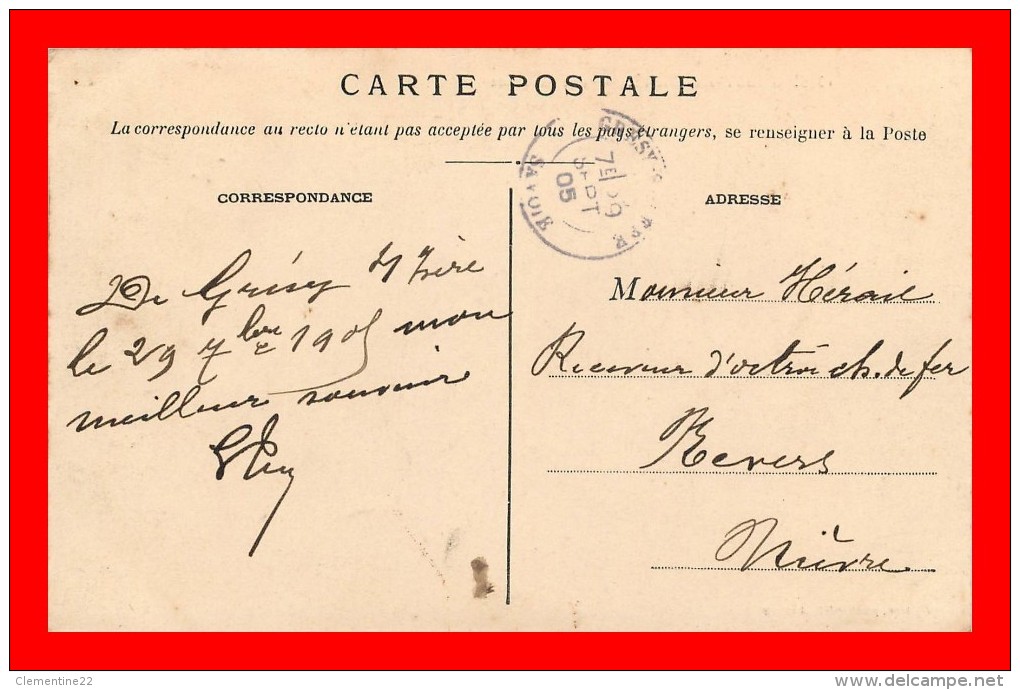 CARTE POSTALE
La correspondance au recto n'étant pas acceptée par tous les pays étrangers, se renseigner à la Poste
CORRESPONDANCE
De Grésy s/ Isère
le 29 7bre 1905 mon
meilleur souvenir
ADRESSE
Monsieur Hérail
Receveur d'octroi ch. de fer
Nevers
Nièvre
GRÉSY-S-ISÈRE
7E 29
SEPT
05
SAVOIE
Clementine22
www.delcampe.net